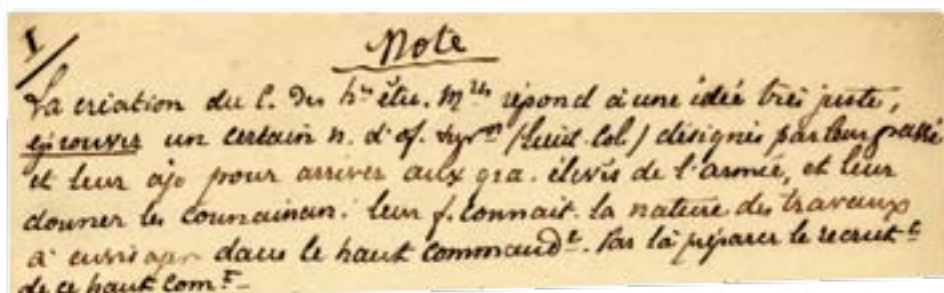 I/
Note
La création du C. des htes étu. Mres répond à une idée très juste,
éprouver un certain n. d'of. suprs (lieut. Col.) désignés par leur passé
et leur âge pour arriver aux gra. élevés de l'armée, et leur
donner les connaissan. leur f. connait. la nature des travaux
à envisager dans le haut commandt. Par là préparer le recrutt
de ce haut Comt.